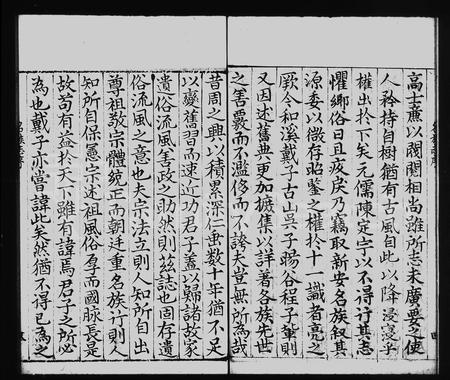 高士廉以閥閱相尚雖所志未廣要之使
人矜持自樹猶有古風自此以降寖寖乎
權出於下矣元儒陳定宇以不得行其志
懼鄉俗日且疲戾乃竊取新安名族叙其
源委以微存昭鑒之權於十一識者亮之
厥令和溪戴子古山吳子弱谷程子輩則
又因述舊典更加摭集以詳著各族先世
之善覈而不濫侈而不誇夫豈無所為哉
昔周之興以積累深仁虫數十年猶不足
以變舊習而速近功君子蓋以歸諸故家
遺俗流風善政之助然則茲誌也固存遺
俗流風之意也夫宗法立則人知所自出
尊祖敬宗體統正而朝廷重名族行則人
知所自保憲宗述祖風俗厚而國脉長是
故苟有益於天下雖有諱焉君子之所必
為也戴子亦嘗諱此矣然猶不得已為之